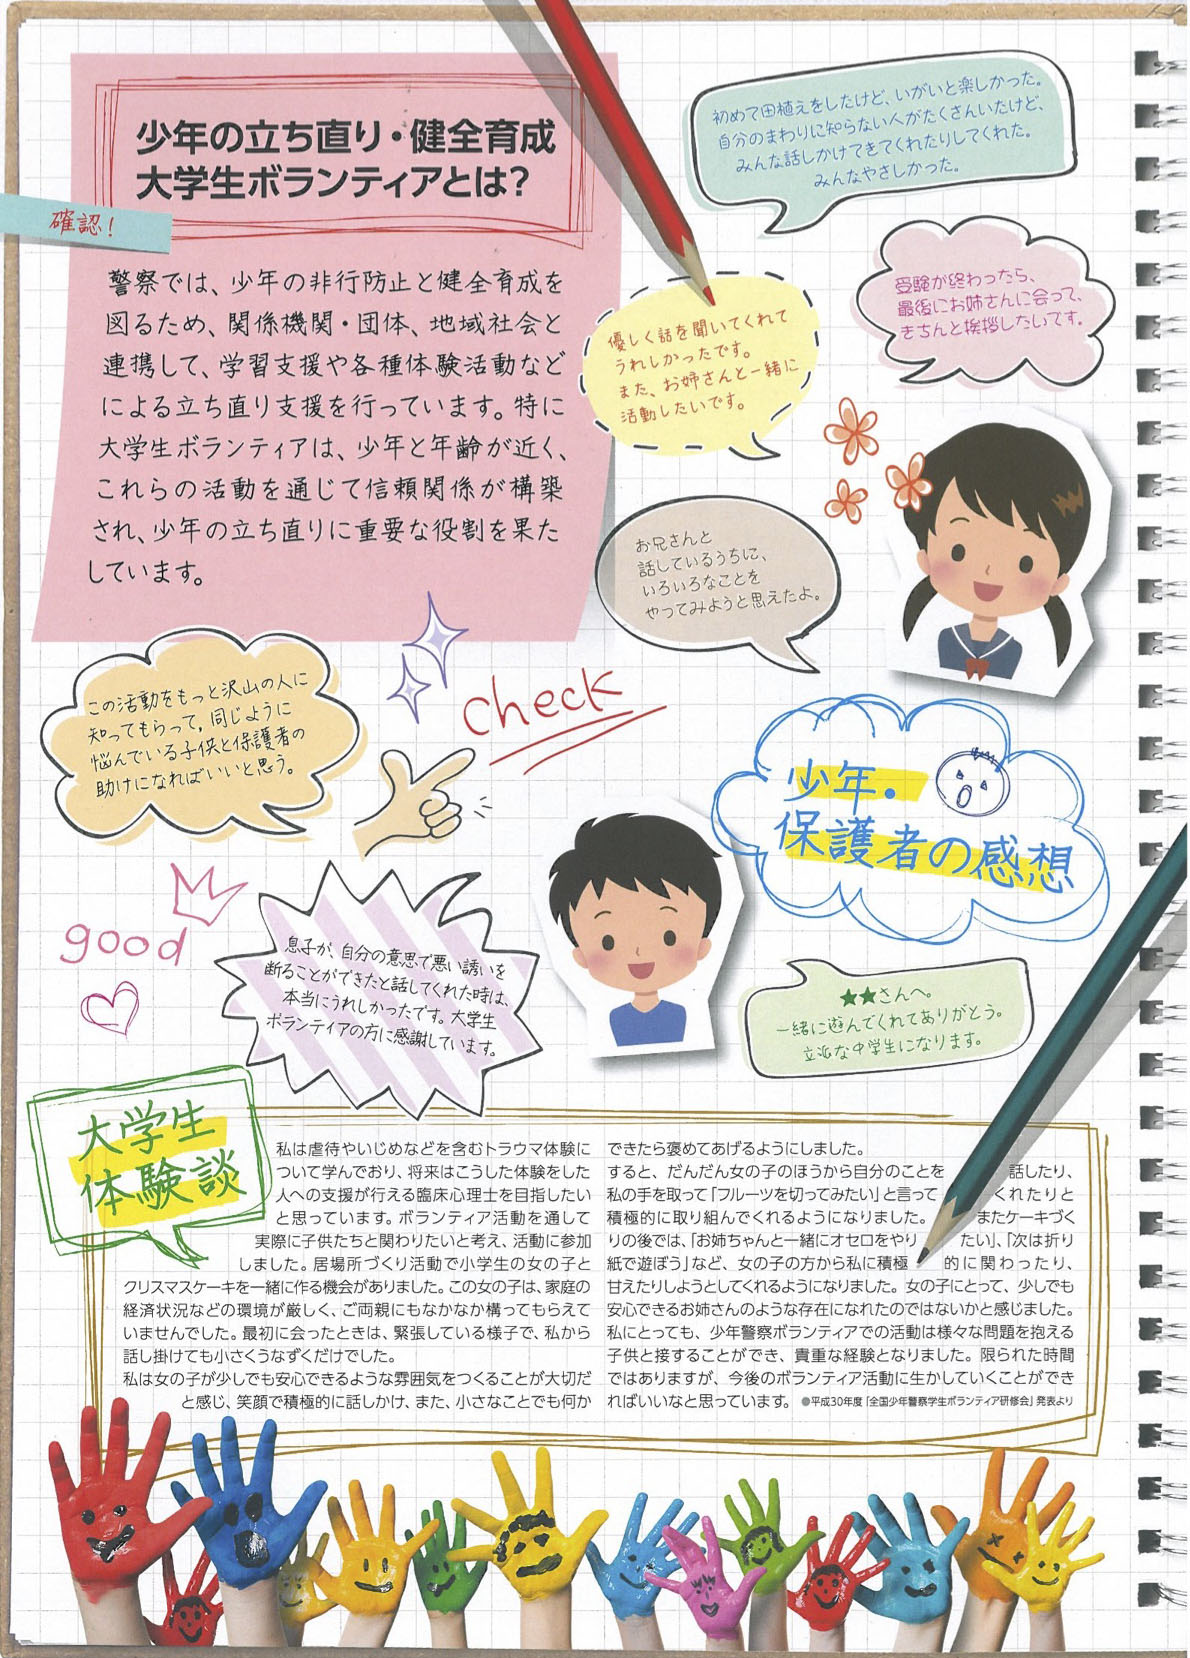 少年の立ち直り・健全育成
大学生ボランティアとは?
確認!
警察では、少年の非行防止と健全育成を
図るため、関係機関・団体、地域社会と
連携して、学習支援や各種体験活動など
による立ち直り支援を行っています。特に
大学生ボランティアは、少年と年齢が近く、
これらの活動を通じて信頼関係が構築
され、少年の立ち直りに重要な役割を果た
しています。
初めて田植えをしたけど、いがいと楽しかった。
自分のまわりに知らない人がたくさんいたけど、
みんな話しかけてきてくれたりしてくれた。
みんなやさしかった。
受験が終わったら、
最後にお姉さんに会って、
きちんと挨拶したいです。
優しく話を聞いてくれて
うれしかったです。
また、お姉さんと一緒に
活動したいです。
お兄さんと
話しているうちに、
いろいろなことを
やってみようと思えたよ。
この活動をもっと沢山の人に
知ってもらって、同じように
悩んでいる子供と保護者の
助けになればいいと思う。
check
少年・
保護者の感想
good
息子が、自分の意思で悪い誘いを
断ることができたと話してくれた時は、
本当にうれしかったです。大学生
ボランティアの方に感謝しています。
★★さんへ。
一緒に遊んでくれてありがとう。
立派な中学生になります。
大学生
体験談
私は虐待やいじめなどを含むトラウマ体験に
ついて学んでおり、将来はこうした体験をした
人への支援が行える臨床心理士を目指したい
と思っています。ボランティア活動を通して
実際に子供たちと関わりたいと考え、活動に参加
しました。居場所づくり活動で小学生の女の子と
クリスマスケーキを一緒に作る機会がありました。この女の子は、家庭の
経済状況などの環境が厳しく、ご両親にもなかなか構ってもらえて
いませんでした。最初に会ったときは、緊張している様子で、私から
話し掛けても小さくうなずくだけでした。
私は女の子が少しでも安心できるような雰囲気をつくることが大切だ
と感じ、笑顔で積極的に話しかけ、また、小さなことでも何か
できたら褒めてあげるようにしました。
すると、だんだん女の子のほうから自分のことを話したり、
私の手を取って「フルーツを切ってみたい」と言ってくれたりと
積極的に取り組んでくれるようになりました。またケーキづく
りの後では、「お姉ちゃんと一緒にオセロをやりたい」、「次は折り
紙で遊ぼう」など、女の子の方から私に積極的に関わったり、
甘えたりしようとしてくれるようになりました。女の子にとって、少しでも
安心できるお姉さんのような存在になれたのではないかと感じました。
私にとっても、少年警察ボランティアでの活動は様々な問題を抱える
子供と接することができ、貴重な経験となりました。限られた時間
ではありますが、今後のボランティア活動に生かしていくことができ
ればいいなと思っています。 ●平成30年度「全国少年警察学生ボランティア研修会」発表より